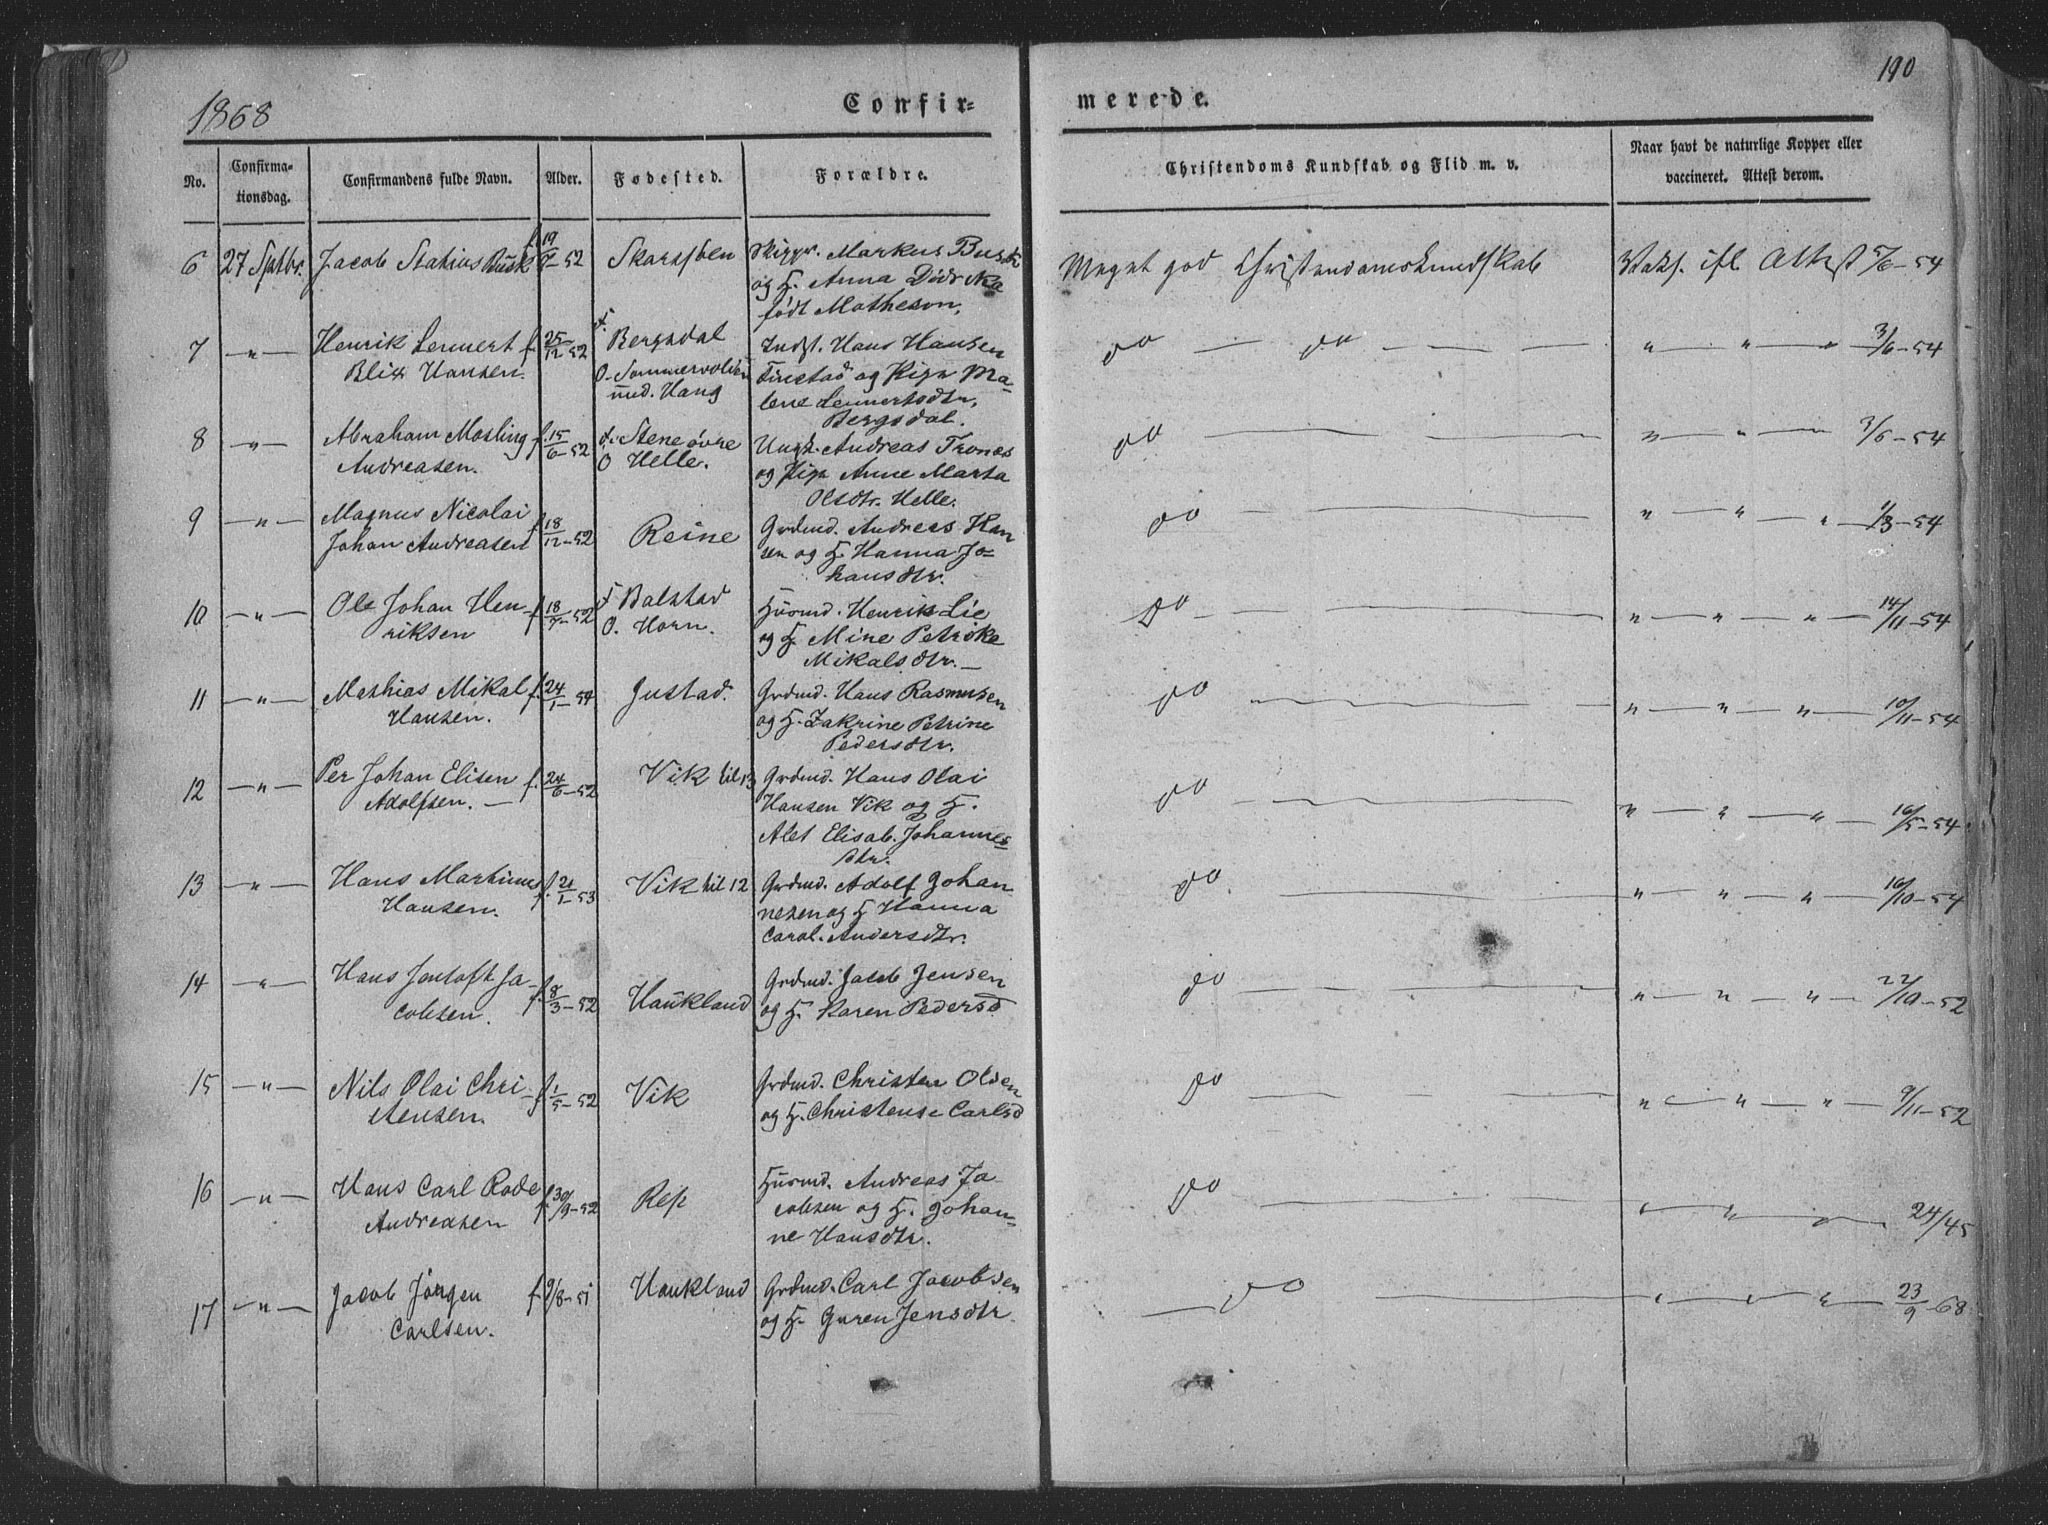 190
1868
Confir-
merede.
No.
Confirma-
tionsdag.
Confirmandens fulde Navn.
Alder.
Fødested.
Forældre.
Christendoms Kundskab og Flid m. v.
Naar havt de naturlige Kopper eller
vaccineret. Attest derom.
6 27 Sptbr. Jacob Statius Busk f. 19/7-52 Skipp. Markus Busk
og H. Anna Didrika
født Matheson,
Meget god Christendomskundskab Vaks. ifl Attest 5/6-54
7 -"- Henrik Lennert f. 25/12-52 f. Bergsdal Indst. Hans Hansen
Blix Hansen. O. og Pige Ma-
lene Lennertsdtr,
Bergsdal.
do — do — — — " " " 3/6-54
8 -"- Abraham Mosling f. 15/6-52 f. Stene øvre Ungk. Andreas Tronæs
Andreasen. O Helle. og Pige Anne Marta
Olsdtr. Helle.
do — " " 3/6-54
9 -"- Magnus Nicolai f. 18/12-52 Reine Grdmd. Andreas Han
Johan Andreasen sen og H. Hanna Jo-
hansdtr.
do — " " — " 1/3-54
10 -"- Ole Johan Hen- f. 18/7-52 f Balstad Husmd. Henrik Lie
riksen O. Horn. og H. Mine Petrike
Mikalsdtr. —
do — " — " — " — 14/11-54
11 -"- Mathias Mikal f. 24/1-54 Justad. Grdmd. Hans Rasmusen
Hansen. og H. Zakrine Petrine
Pedersdtr.
do — " — " — " — 10/11-54
12 -"- Per Johan Elisen f. 24/6-52 Vik til 13 Grdmd. Hans Olai
Adolfsen. — Hansen Vik og H.
Alet Elisab. Johannes-
dtr.
do — " — " — " — 16/5-54
13 -"- Hans Martinus f. 21/1-53 Vik til 12 Grdmd. Adolf Johan
Hansen. nesen og H Hanna
Carol. Andersdtr.
do — " — " — " — 16/10-54
14 -"- Hans Jentoft Ja- f. 8/3-52 Haukland Grdmd. Jacob Jensen
cobsen. og H. Karen Pedersd
do — " — " — " — 22/10-52
15 -"- Nils Olai Chri- f. 1/5-52 Vik Grdmd. Christen Olsen
stensen. og H. Christense Carlsd
do — " — " — " — 9/11-52
16 -"- Hans Carl Rode f. 30/9-52 Rep Husmd. Andreas Ja-
Andreasen cobsen og H. Johan-
ne Hansdtr.
do — " — " — " — 24/45
17 -"- Jacob Jørgen f. 9/8-51 Haukland Grdmd. Carl Jacobsen
Carlsen. og H. Guren Jensdtr.
— do — " — " — " — 23/9-68